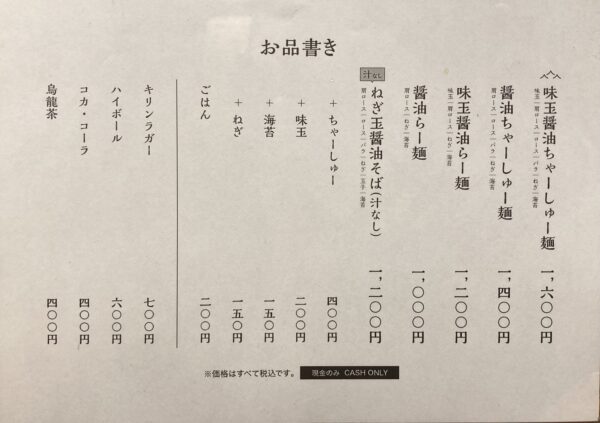 お品書き
味玉醤油ちゃーしゅー麺 一,六〇〇円
味玉|肩ロース|ロース|バラ|ねぎ|海苔
醤油ちゃーしゅー麺 一,四〇〇円
肩ロース|ロース|バラ|ねぎ|海苔
味玉醤油らー麺 一,二〇〇円
味玉|肩ロース|ねぎ|海苔
醤油らー麺 一,〇〇〇円
肩ロース|ねぎ|海苔
汁なし
ねぎ玉醤油そば(汁なし) 一,二〇〇円
肩ロース|ロース|バラ|ねぎ|玉子|海苔
+ ちゃーしゅー 四〇〇円
+ 味玉 二〇〇円
+ 海苔 一五〇円
+ ねぎ 一五〇円
ごはん 二〇〇円
キリンラガー 七〇〇円
ハイボール 六〇〇円
コカ・コーラ 四〇〇円
烏龍茶 四〇〇円
※価格はすべて税込です。 現金のみ CASH ONLY